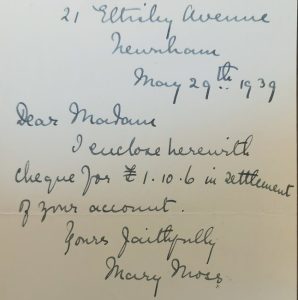 21 Eltisley Avenue
Newnham
May 29th. 1939
Dear Madam
I enclose herewith
cheque for £1.10.6 in settlement
of your account.
Yours faithfully
Mary Moss